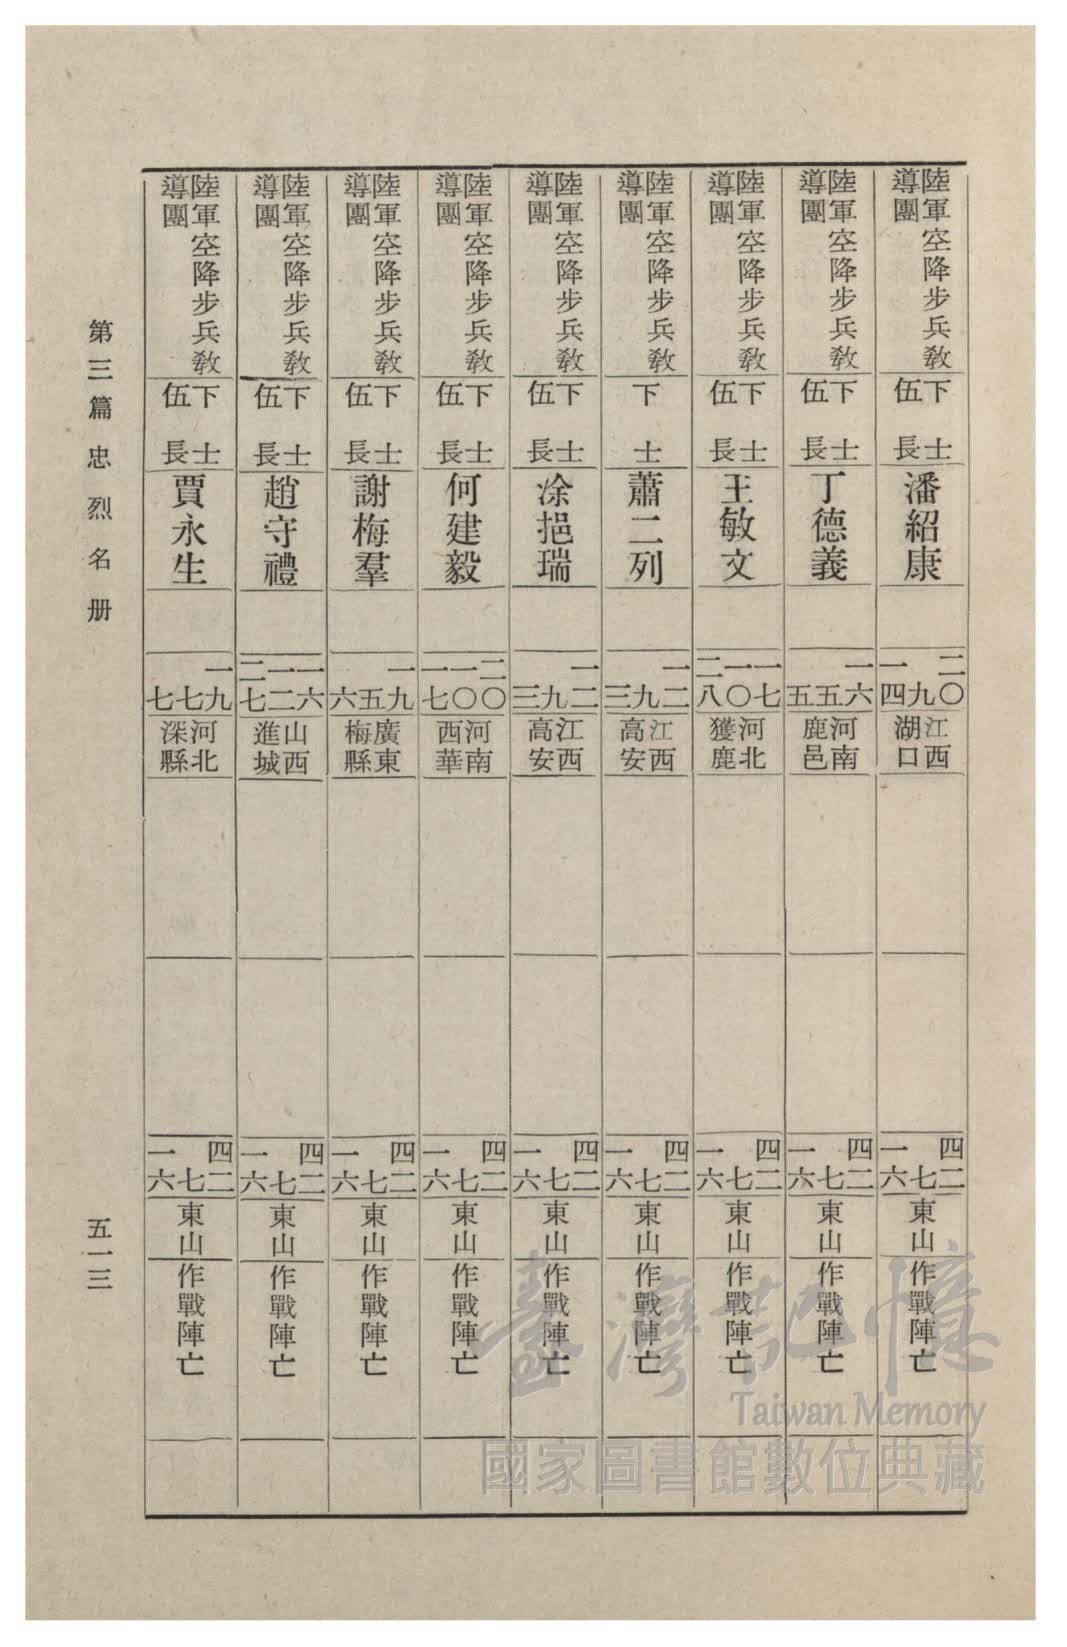 陸軍空降步兵教
導團
下士
伍長
潘紹康
二〇
九
一四
江西
湖口
四二
七
一六
東山
作戰陣亡
陸軍空降步兵教
導團
下士
伍長
丁德義
一六
五
五
河南
鹿邑
四二
七
一六
東山
作戰陣亡
陸軍空降步兵教
導團
下士
伍長
王敏文
一七
一〇
二八
河北
獲鹿
四二
七
一六
東山
作戰陣亡
陸軍空降步兵教
導團
下士
蕭二列
一二
九
三
江西
高安
四二
七
一六
東山
作戰陣亡
陸軍空降步兵教
導團
下士
伍長
凃挹瑞
一二
九
三
江西
高安
四二
七
一六
東山
作戰陣亡
陸軍空降步兵教
導團
下士
伍長
何建毅
二〇
一〇
一七
河南
西華
四二
七
一六
東山
作戰陣亡
陸軍空降步兵教
導團
下士
伍長
謝梅羣
一九
五
六
廣東
梅縣
四二
七
一六
東山
作戰陣亡
陸軍空降步兵教
導團
下士
伍長
趙守禮
一六
一二
二七
山西
進城
四二
七
一六
東山
作戰陣亡
陸軍空降步兵教
導團
下士
伍長
賈永生
一九
七
七
河北
深縣
四二
七
一六
東山
作戰陣亡
第三篇 忠烈名册
五一三
臺灣記憶
Taiwan Memory
國家圖書館數位典藏